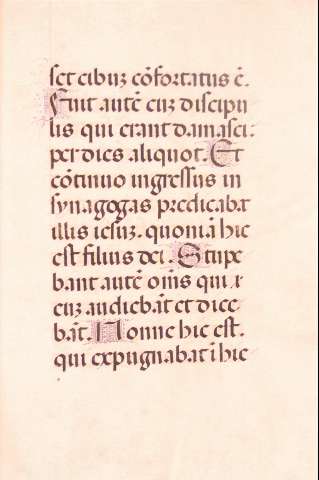 set cibuz cōfortatus ē.
Fuit autē cuz discipu
lis qui erant damasci:
per dies aliquot. Et
cōtinuo ingressus in
synagogas predicabat
illis iesuz. quoniā hic
est filius dei. Stupe
bant autē om̄s qui
euz audiebāt et dice
bāt. Nonne hic est.
qui expugnabat ī hie